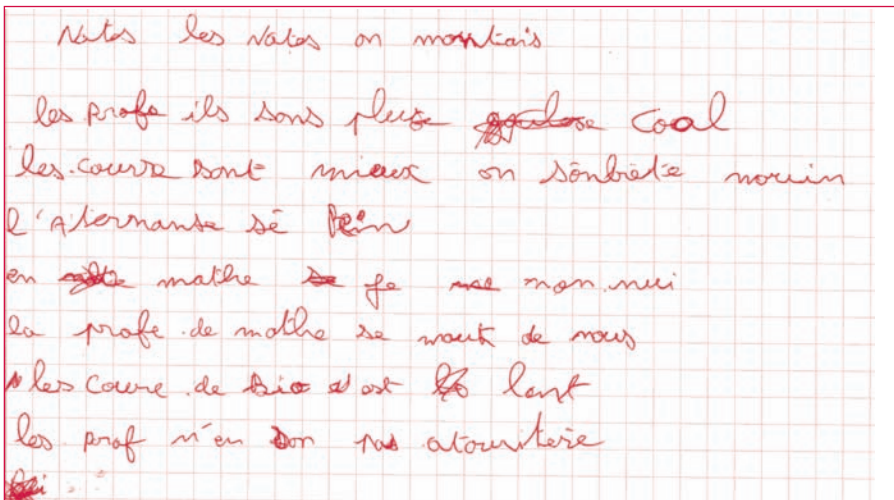 Notes les Notes on montais
les profe ils sons pluse cool
les courre sont mieux on s'onbiete mouin
l'Aternanse sé bein
en mathe je mon nui
la profe de mathe se mout de nous
les courre de Bio s'est lant
les prof n'en son pas atouritere